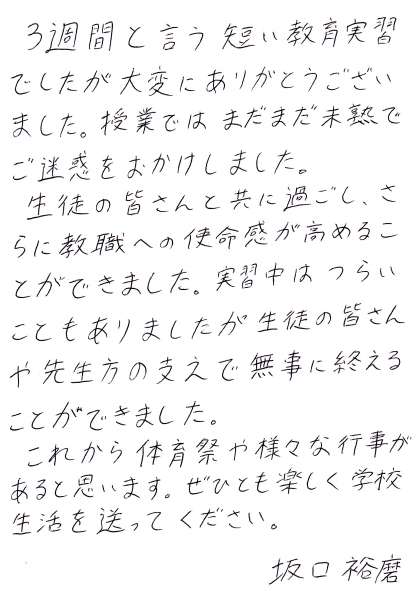 3週間と言う短い教育実習
でしたが大変にありがとうござい
ました。授業ではまだまだ未熟で
ご迷惑をおかけしました。
生徒の皆さんと共に過ごし、さ
らに教職への使命感が高めるこ
とができました。実習中はつらい
こともありましたが生徒の皆さん
や先生方の支えで無事に終える
ことができました。
これから体育祭や様々な行事が
あると思います。ぜひとも楽しく学校
生活を送ってください。
坂口裕磨